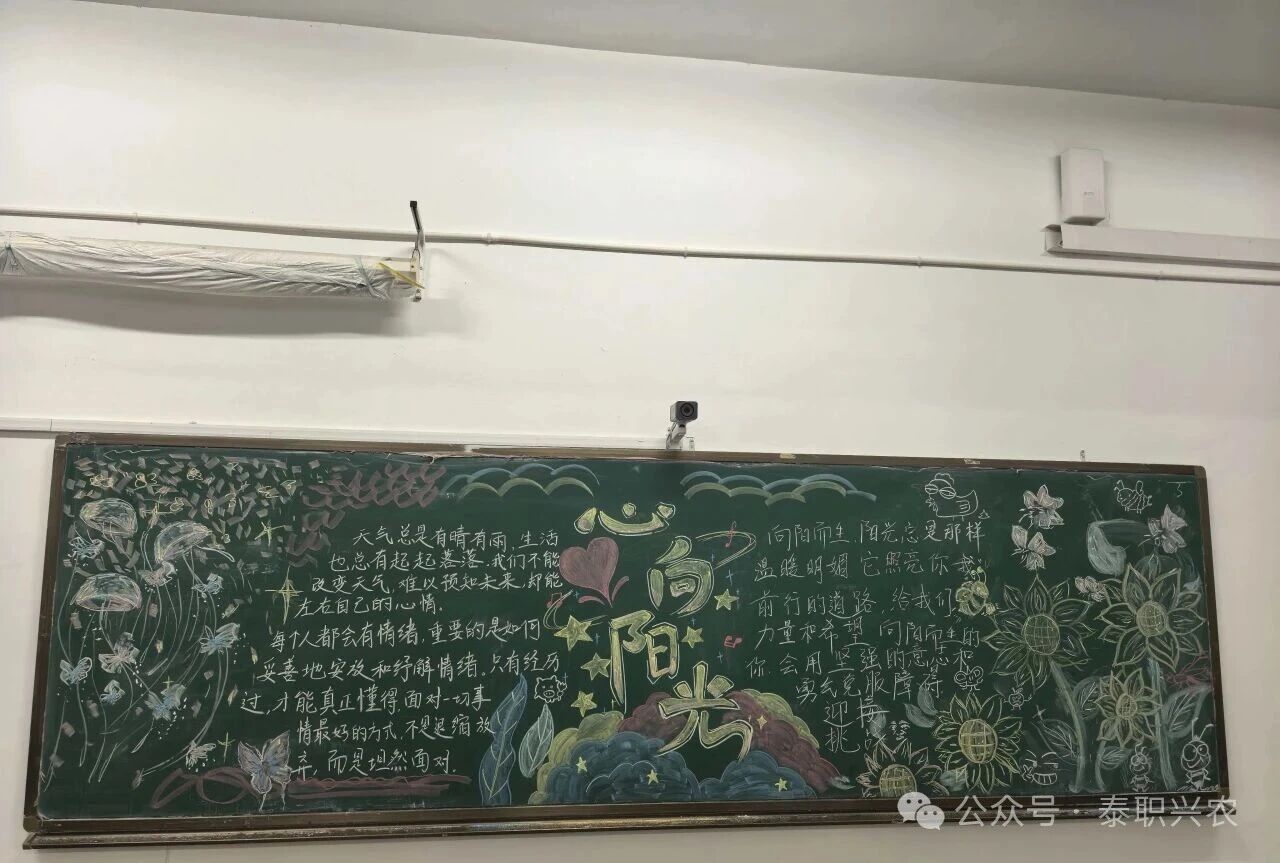 天气总是有晴有雨，生活
也总有起起落落。我们不能
改变天气，难以预知未来，却能
左右自己的心情。
每个人都会有情绪，重要的是如何
妥善地安放和纾解情绪。只有经历
过，才能真正懂得，面对一切事
情最好的方式，不是退缩放
弃，而是坦然面对。
心向阳光
向阳而生 阳光总是那样
温暖明媚 它照亮你我
前行的道路，给我们
力量和希望 向阳而生的
你会用坚强的意志和
勇气克服障碍
迎接
挑
公众号·泰职兴农